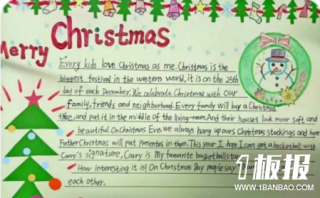 Merry Christmas
Every kids love Christmas as me. Christmas is the
biggest festival in the western world, it is on the 25th
day of each December. We celebrate Christmas with our
family, friends and neighborhood. Every family will buy a Christmas
tree, and put it in the middle of the living-room. And their houses look over soft, and
beautiful. On Christmas Eve, we always hang up ours Christmas stockings and hope
Father Christmas will put in them. This year I hope I can get a basketball with
signature, is my favourite basketball star
How interesting it is! On Christmas Day people say
each other.
1板报
WWW.1BANBAO.COM